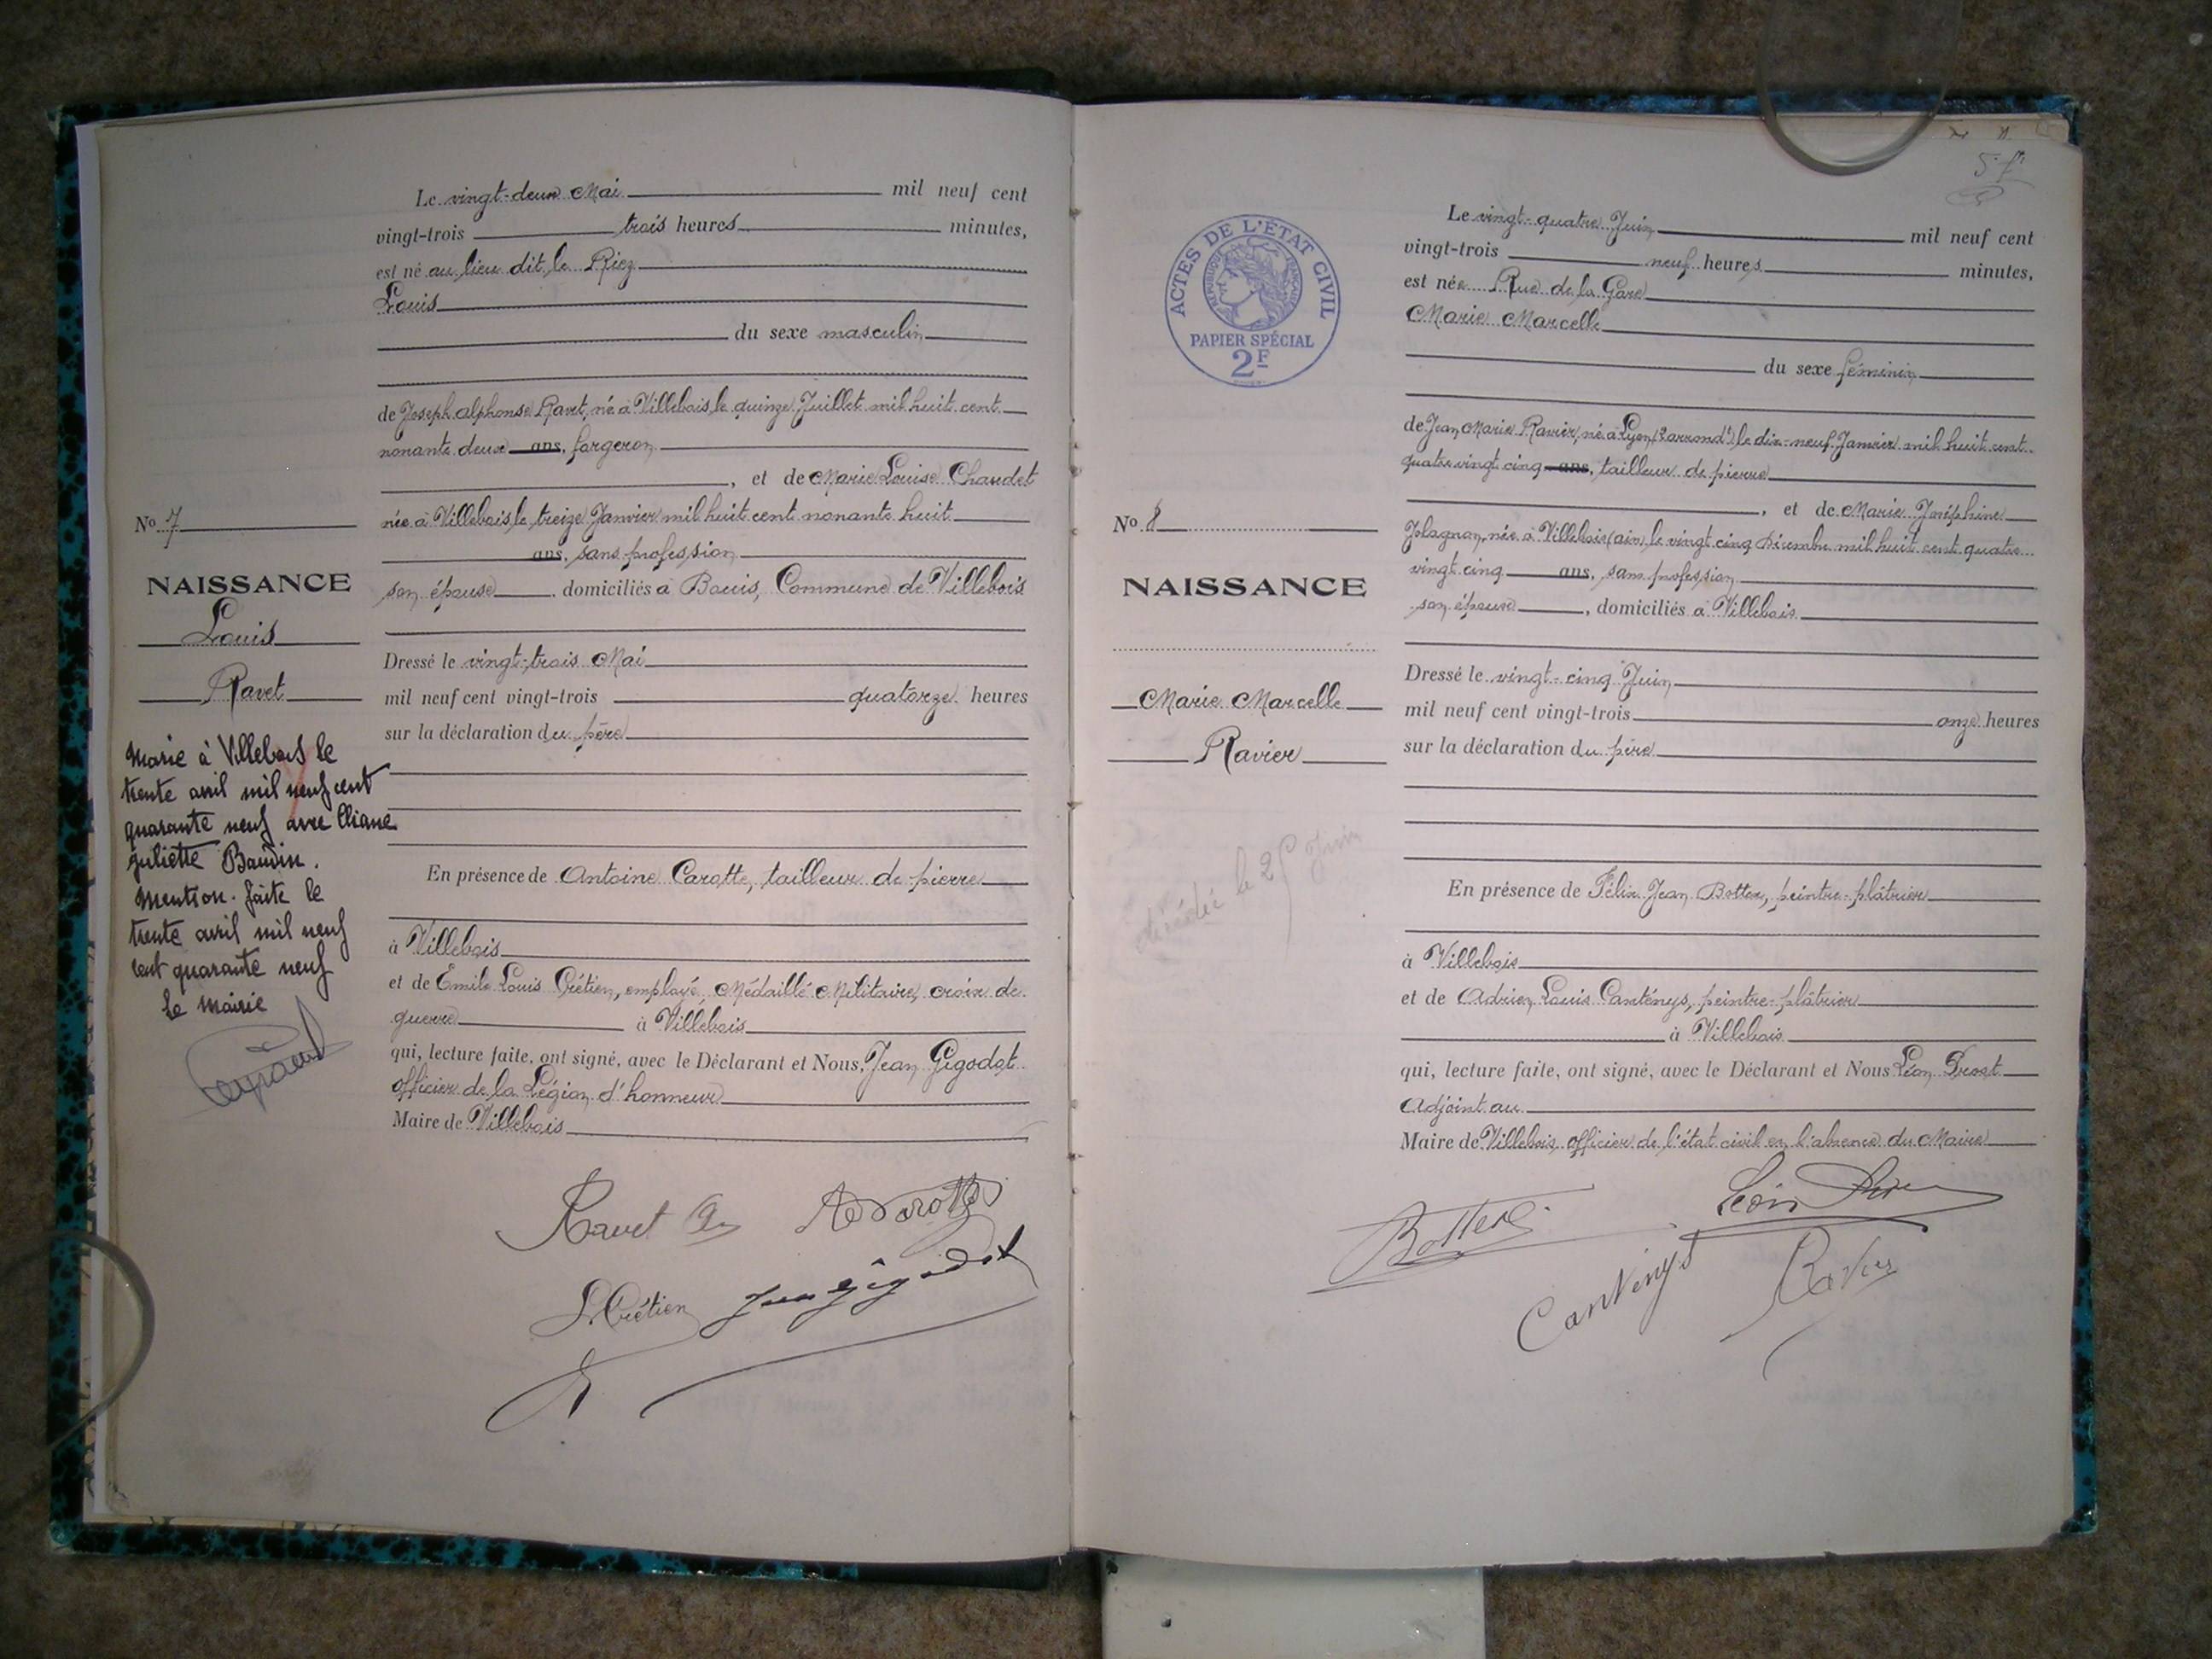 Le vingt-deux Mai mil neuf cent
vingt-trois trois heures minutes,
est né au lieu dit le Riez
Louis
du sexe masculin
de Joseph Alphonse Ravet, né à Villebois le quinze Juillet mil huit cent
nonante deux ans, forgeron
, et de Marie Louise Chaudet
née à Villebois le treize Janvier mil huit cent nonante huit
ans, sans profession
son épouse, domiciliés à Bouis, Commune de Villebois
Dressé le vingt-trois Mai
mil neuf cent vingt-trois quatorze heures
sur la déclaration du père
En présence de Antoine Carotte, tailleur de pierre
à Villebois
et de Emile Louis Crétien, employé, Médaillé Militaire, croix de
guerre à Villebois
qui, lecture faite, ont signé, avec le Déclarant et Nous, Jean Gigodot
officier de la Légion d'honneur
Maire de Villebois
Ravet
L Crétien Jean Gigodot
No 7
NAISSANCE
Louis
Ravet
Marié à Villebois le
trente avril mil neuf cent
quarante neuf avec Eliane
Juliette Baudin.
Mention faite le
trente avril mil neuf
cent quarante neuf
le mairie
5 f
ACTES DE L'ÉTAT CIVIL
RÉPUBLIQUE FRANÇAISE
PAPIER SPÉCIAL
2F
Le vingt-quatre Juin mil neuf cent
vingt-trois neuf heures minutes,
est née Rue de la Gare
Marie Marcelle
du sexe féminin
de Jean Marie Ravier, né à Lyon (2e arrondt) le dix-neuf Janvier mil huit cent
quatre vingt cinq ans, tailleur de pierre
, et de Marie Joséphine
née à Villebois (ain) le vingt cinq Décembre mil huit cent quatre
vingt cinq ans, sans profession
son épouse, domiciliés à Villebois
Dressé le vingt-cinq Juin
mil neuf cent vingt-trois onze heures
sur la déclaration du père
En présence de Félix Jean Botter, peintre-plâtrier
à Villebois
et de Adrien Louis Canténys, peintre-plâtrier
à Villebois
qui, lecture faite, ont signé, avec le Déclarant et Nous Léon
Adjoint au
Maire de Villebois, officier de l'état civil en l'absence du Maire
Botter Léon
Cantenys Ravier
No 8
NAISSANCE
Marie Marcelle
Ravier
décédée le 25 Juin